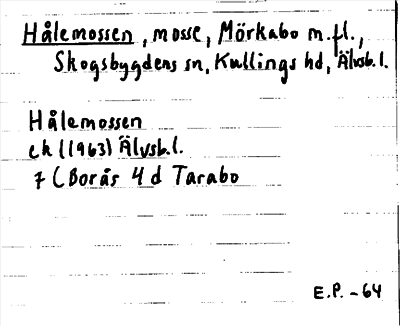 Hålemossen, mosse, Mörkabo m.fl.,
Skogsbygdens sn, Kullings hd, Älvsb.l.
Hålemossen
ek (1963) Älvsb.l.
7 C Borås 4 d Tarabo
E.P. -64